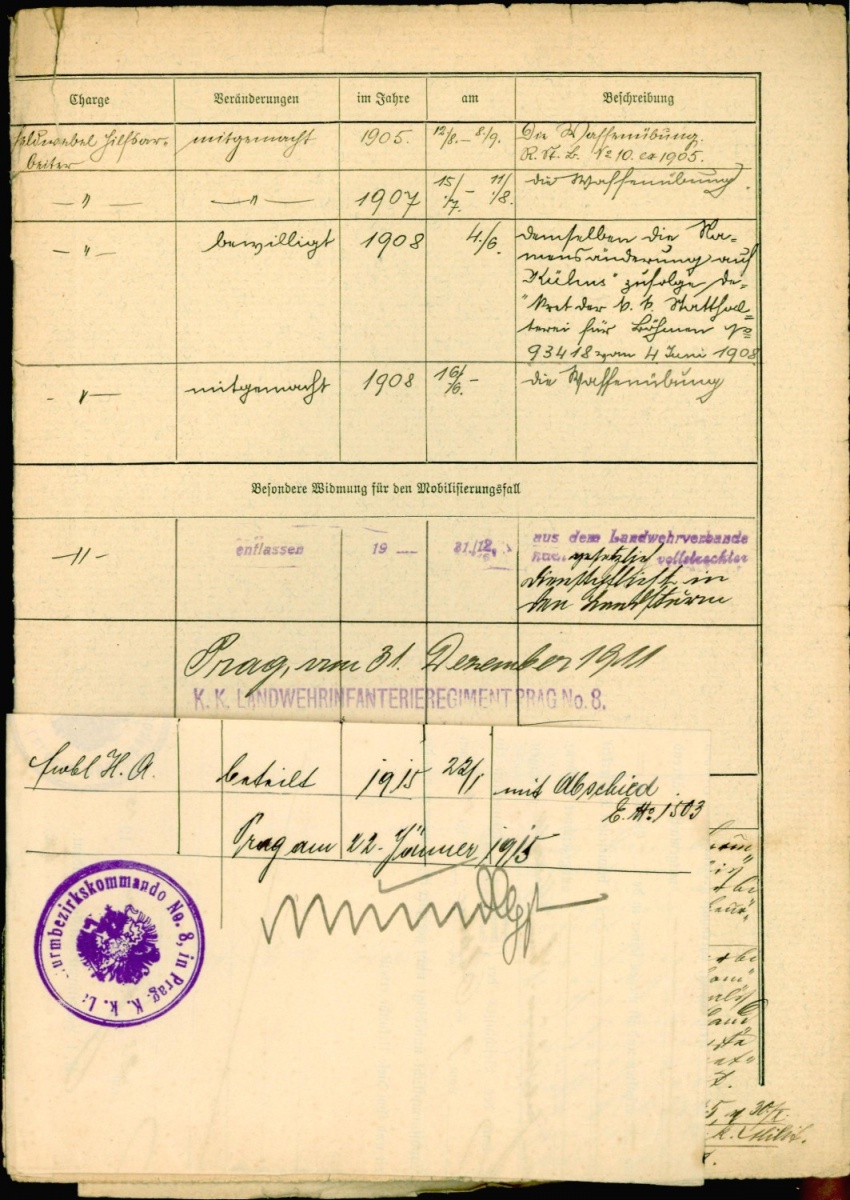 Charge Veränderungen im Jahre am Beschreibung
Feldwebel Hilfsar- mitgemacht 1905. 12/8. – 8/9. Die Waffenübung.
beiter R. St. B. No 10. ex 1905.
— " — — " — 1907 15/7. – 11/8. die Waffenübung.
— " — bewilligt 1908 4./6. demselben die Na-
mensänderung auf
"Kühns" zufolge De-
kret der k. k. Statthal-
terei für Böhmen No
93418 vom 4 Juni 1908
- " — mitgemacht 1908 16/6. - die Waffenübung
Besondere Widmung für den Mobilisierungsfall
— " — entlassen 19 — 31./12. aus dem Landwehrverbande
nach gesetzlich vollstreckter
Dienstpflicht in
den Landsturm
Prag, am 31. Dezember 1911
K. K. LANDWEHRINFANTERIEREGIMENT PRAG No. 8.
fwbl H. A. beteilt 1915 22/1 mit Abschied.
E. No. 1503
Prag am 22. Jänner 1915
urmbezirkskommando No. 8, in Prag. K. k. L